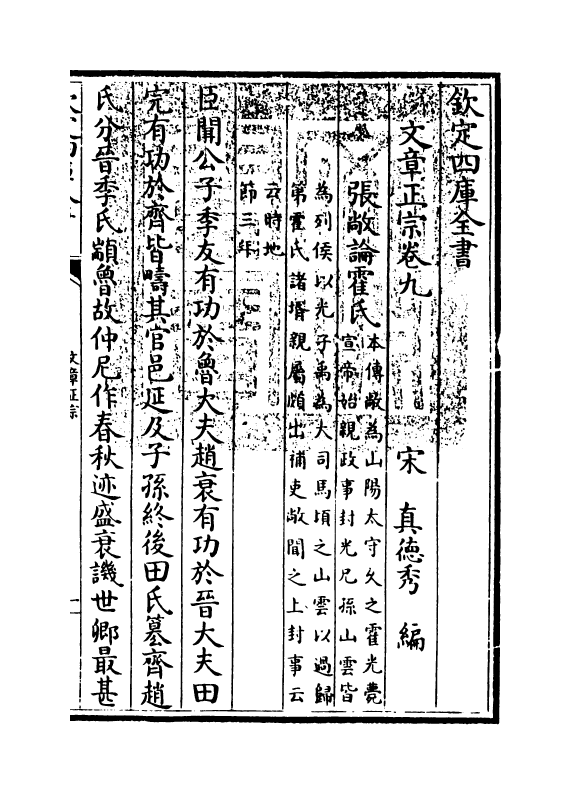 欽定四庫全書
文章正宗卷九
宋　真德秀　編
張敞論霍氏
本傳敞為山陽太守久之霍光薨
宣帝始親政事封光兄孫山雲皆
為列侯以光子禹為大司馬頃之山雲以過歸
第霍氏諸壻親屬頗出補吏敞聞之上封事云
云時地
節三年
臣聞公子季友有功於魯大夫趙衰有功於晉大夫田
完有功於齊皆疇其官邑延及子孫終後田氏簒齊趙
氏分晉季氏顓魯故仲尼作春秋迹盛衰譏世卿最甚
文章正宗
一